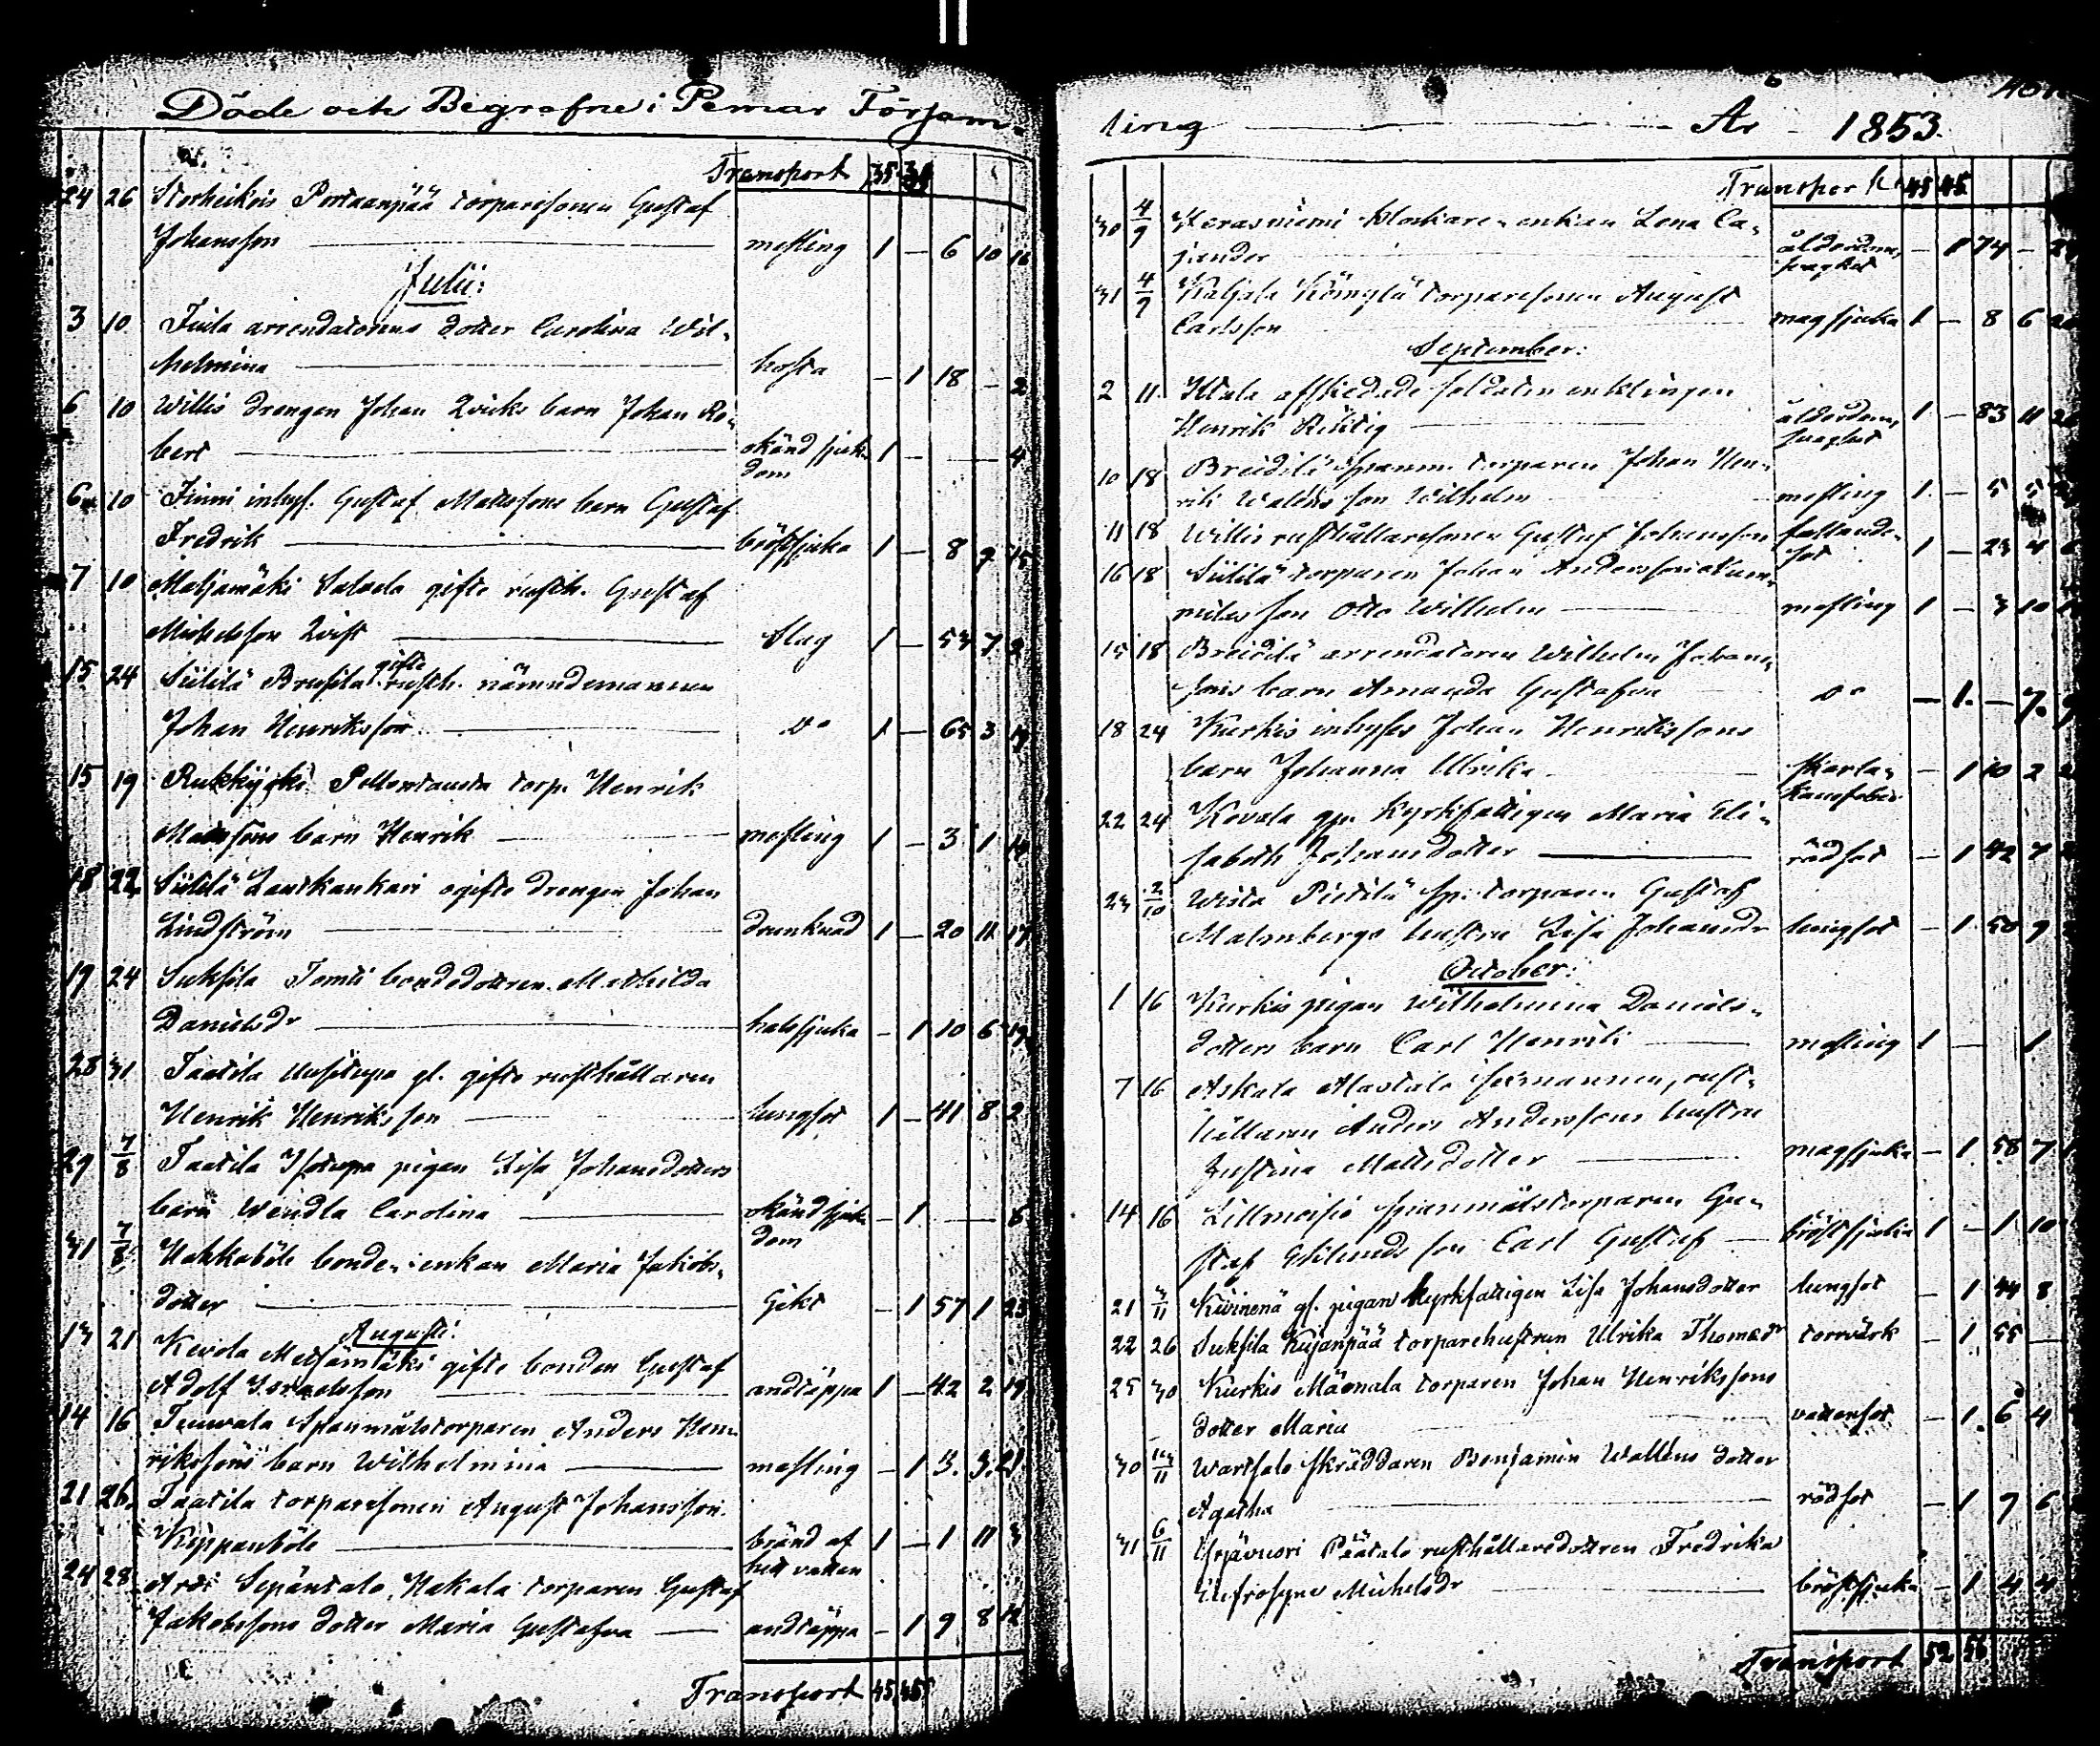 Döde och Begrafne i Pemar Försam-
Transport 35 39
24 26 Storheikois Portaanpää torparesonen Gustaf
Johansson messling 1 — 6 10 16
Julii:
3 10 Juila arrendatorns dotter Carolina Wil-
helmina hosta — 1 18 — 2
6 10 Willis drengen Johan Qvicks barn Johan Ro-
bert okänd sjuk- 1 — — — 4
dom
6 10 Finni inhys. Gustaf Matssons barn Gustaf
Fredrik bröstsjuka 1 — 8 9 15
7 10 Maljamäki gifte rusth. Gustaf
Michelsson Qvist Slag 1 — 53 7 2
gifte
15 24 Siililä Brusila rusth. nämndemannen
Johan Henriksson do 1 — 65 3 19
15 19 Rukkijoki torp. Henrik
Matssons barn Henrik messling 1 — 3 1 14
18 22 Siililä Lautkankari ogifte drengen Johan
Lindström drunknad 1 — 20 11 17
19 24 Suksila Tomti bondedottren Mathilda
Danielsdr halssjuka — 1 10 6 19
28 31 Taatila Uusitupa gl. gifte rusthållaren
Henrik Henriksson lungsot 1 — 41 8 2
29 7/8 Taatila Isotupa pigan Lisa Johansdotters
barn Wendla Carolina okänd sjuk- — 1 — — 6
dom
31 7/8 Nakkaböle bonde-enkan Maria Jakobs-
dotter Gikt — 1 57 1 23
Augusti:
13 21 Kevola Metsämäki gifte bonden Gustaf
Adolf Israelsson andtäppa 1 — 42 2 19
14 16 Tuuvala Spanmålstorparen Anders Hen-
rikssons barn Wilhelmina messling — 1 3. 3. 21.
21 26. Taatila torparesonen August Johansson
Keppanböle bränd af 1 — 1 11 3
het vatten
24 28 Arvi Sepäntalo, Hakala torparen Gustaf
Jakobssons dotter Maria Gustafva andtäppa — 1 9 8 12
Transport 45 45
ling År 1853.
Transport 45 45
30 4/9 Kerasniemi klockare-enkan Lena Ca-
jander ålderdoms- — 1 74 — 29
svaghet
31 4/9 Kaljala Kömylä torparesonen August
Carlsson magsjuka 1 — 8 6 20
September:
2 11. Iltala afskedade soldaten enklingen
Henrik Riktig ålderdoms- 1 — 83 11 20
svaghet
10 18 Breidilä spanm. torparen Johan Hen-
rik Waldens son Wilhelm messling 1. — 5 5
11 18 Willis rusthållaresonen Gustaf Johansson fallande-
sot 1 — 23 4 6
16 18 Siililä torparen Johan Anderssons
son Otto Wilhelm messling 1 — 3 10
15 18 Breidilä arrendatoren Wilhelm Johans-
sons barn Amanda Gustafva do — 1. — 7. 9
18 24 Kurkis inhyses Johan Henrikssons
barn Johanna Ulrika skarla- — 1 10 2 2
kansfeber
22 24 Kevola gp. kyrkfattigen Maria Eli-
sabeth Johansdotter rödsot — 1 42 7
23 2/10 Wista Pietilä sp. torparen Gustaf
Malmbergs hustru Lisa Johansdr lungsot — 1. 50 9
October:
1 16 Kurkis pigan Wilhelmina Daniels-
dotters barn Carl Henrik messling 1 — 1
7 16 Askala Alastalo sexmannen, rust-
hållaren Anders Anderssons hustru
Justina Mattsdotter magsjuka — 1. 58 7 1
14 16 Lillmoisio spanmålstorparen Gu-
staf son Carl Gustaf bröstsjuka 1 — 1 10
21 3/11 Kivinenä gl. pigan kyrkfattigen Lisa Johansdotter lungsot — 1 44 8
22 26 Suksila Kujanpää torparehustrun Ulrika Thomasdr torrvärk — 1 55 —
25 30 Kurkis Mäenala torparen Johan Henrikssons
dotter Maria vattensot — 1. 6 4
30 13/11 Wartsalo skräddaren Benjamin Walléns dotter
Agatha rödsot — 1 9 6
31 6/11 Yrjävuori Päätalo rusthållaredottren Fredrika
Eufrosyne Michelsdr bröstsjuka — 1 4 4
Transport 52 56